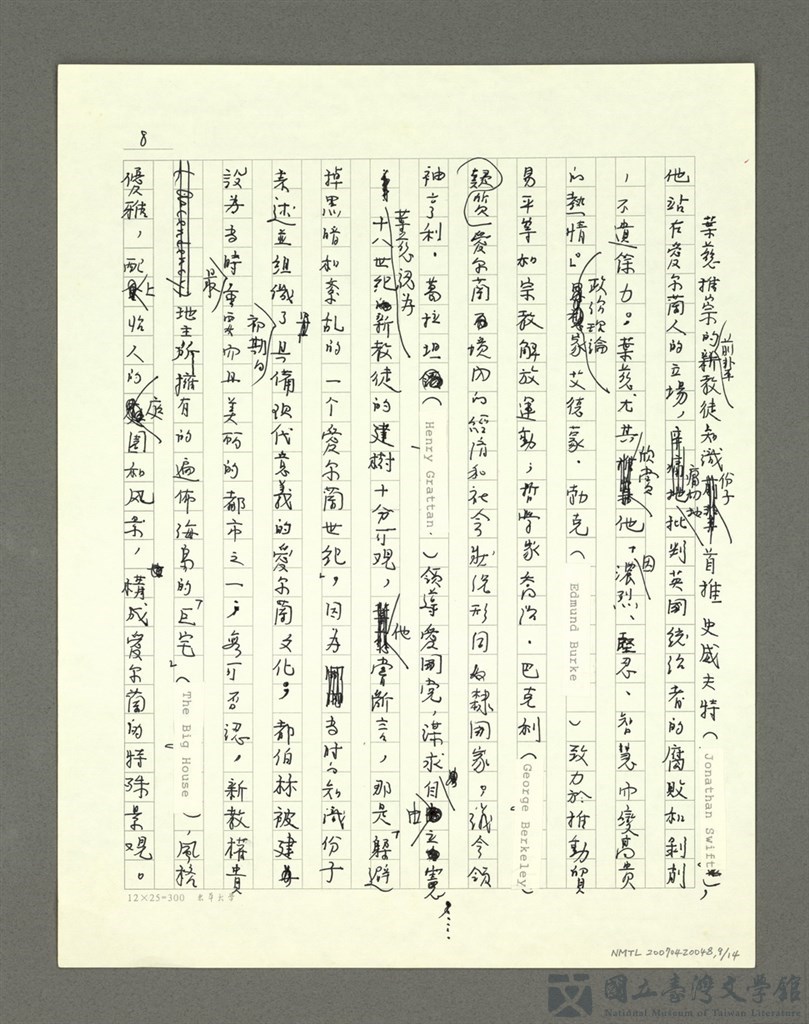 8
葉慈推崇的前輩新教徒知識份子首推史威夫特（Jonathan Swift），
他站在愛尔蘭人的立場，痛切地批判英国統治者的腐敗和剥削
，不遺余力。葉慈尤其欣賞他，因「濃烈、堅忍、智慧而變高贵
的熱情」。政治理論家艾德蒙．勃克（Edmund Burke）致力於推動貿
易平等和宗教解放運動；哲学家喬治．巴克利（George Berkeley）
質疑愛尔蘭境內的經濟和社会狀況形同奴隸囯家。議会領
袖亨利．葛拉坦（Henry Grattan.）領導愛囯党，謀求自由立憲……
葉慈認为十八世紀新教徒的建樹十分可观，他嘗断言，那是「躲避
掉黑暗和紊乱的一个愛尔蘭世紀」，因为当时的知識份子
表述並組織了具備現代意義的愛尔蘭文化；都伯林被建
設为当時最重要而且美丽的都市之一；無可否認，初期的新教權貴
地主所擁有的遍佈海島的「巨宅」（The Big House），風格
優雅，配上怡人的庭園和风景，構成愛尔蘭的特殊景观。
12×25=300
NMTL 20070420048, 9/14
國立臺灣文學館
National Museum of Taiwan Literature